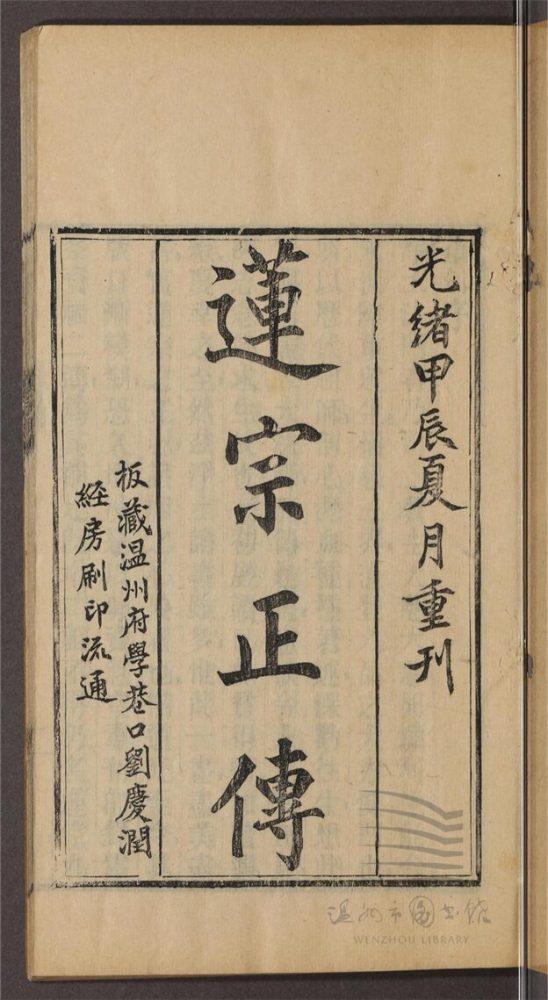 光緒甲辰夏月重刊
蓮宗正傳
板藏温州府學巷口劉慶潤
經房刷印流通
温州市图书馆
WENZHOU LIBRARY